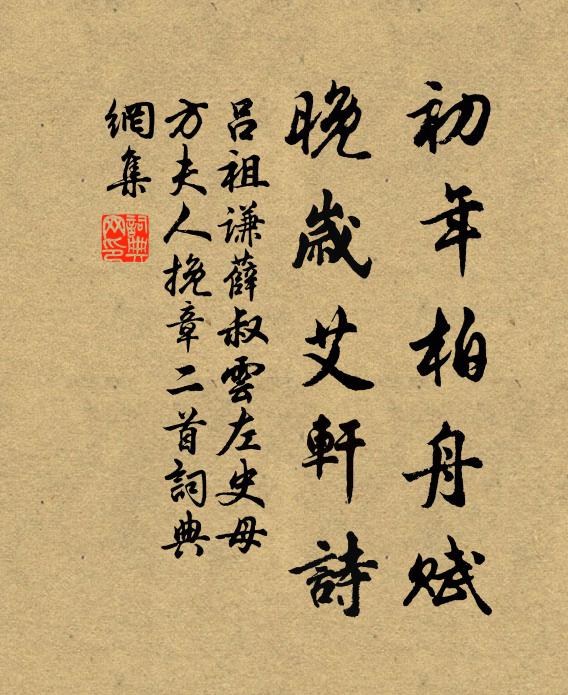 初年柏舟赋
晚歲艾軒詩
呂祖謙薛叔雲左史母
方夫人挽章二首詞典
網集
詞典網印